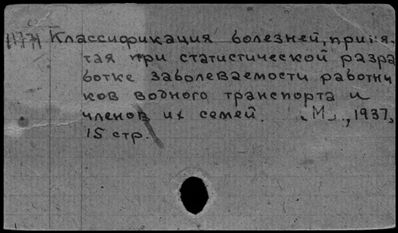 Классификация болезней, приня-
тая при статистической разра
ботке заболеваемости работни
ков водного транспорта и
членов их семей. М., 1937,
15 стр.